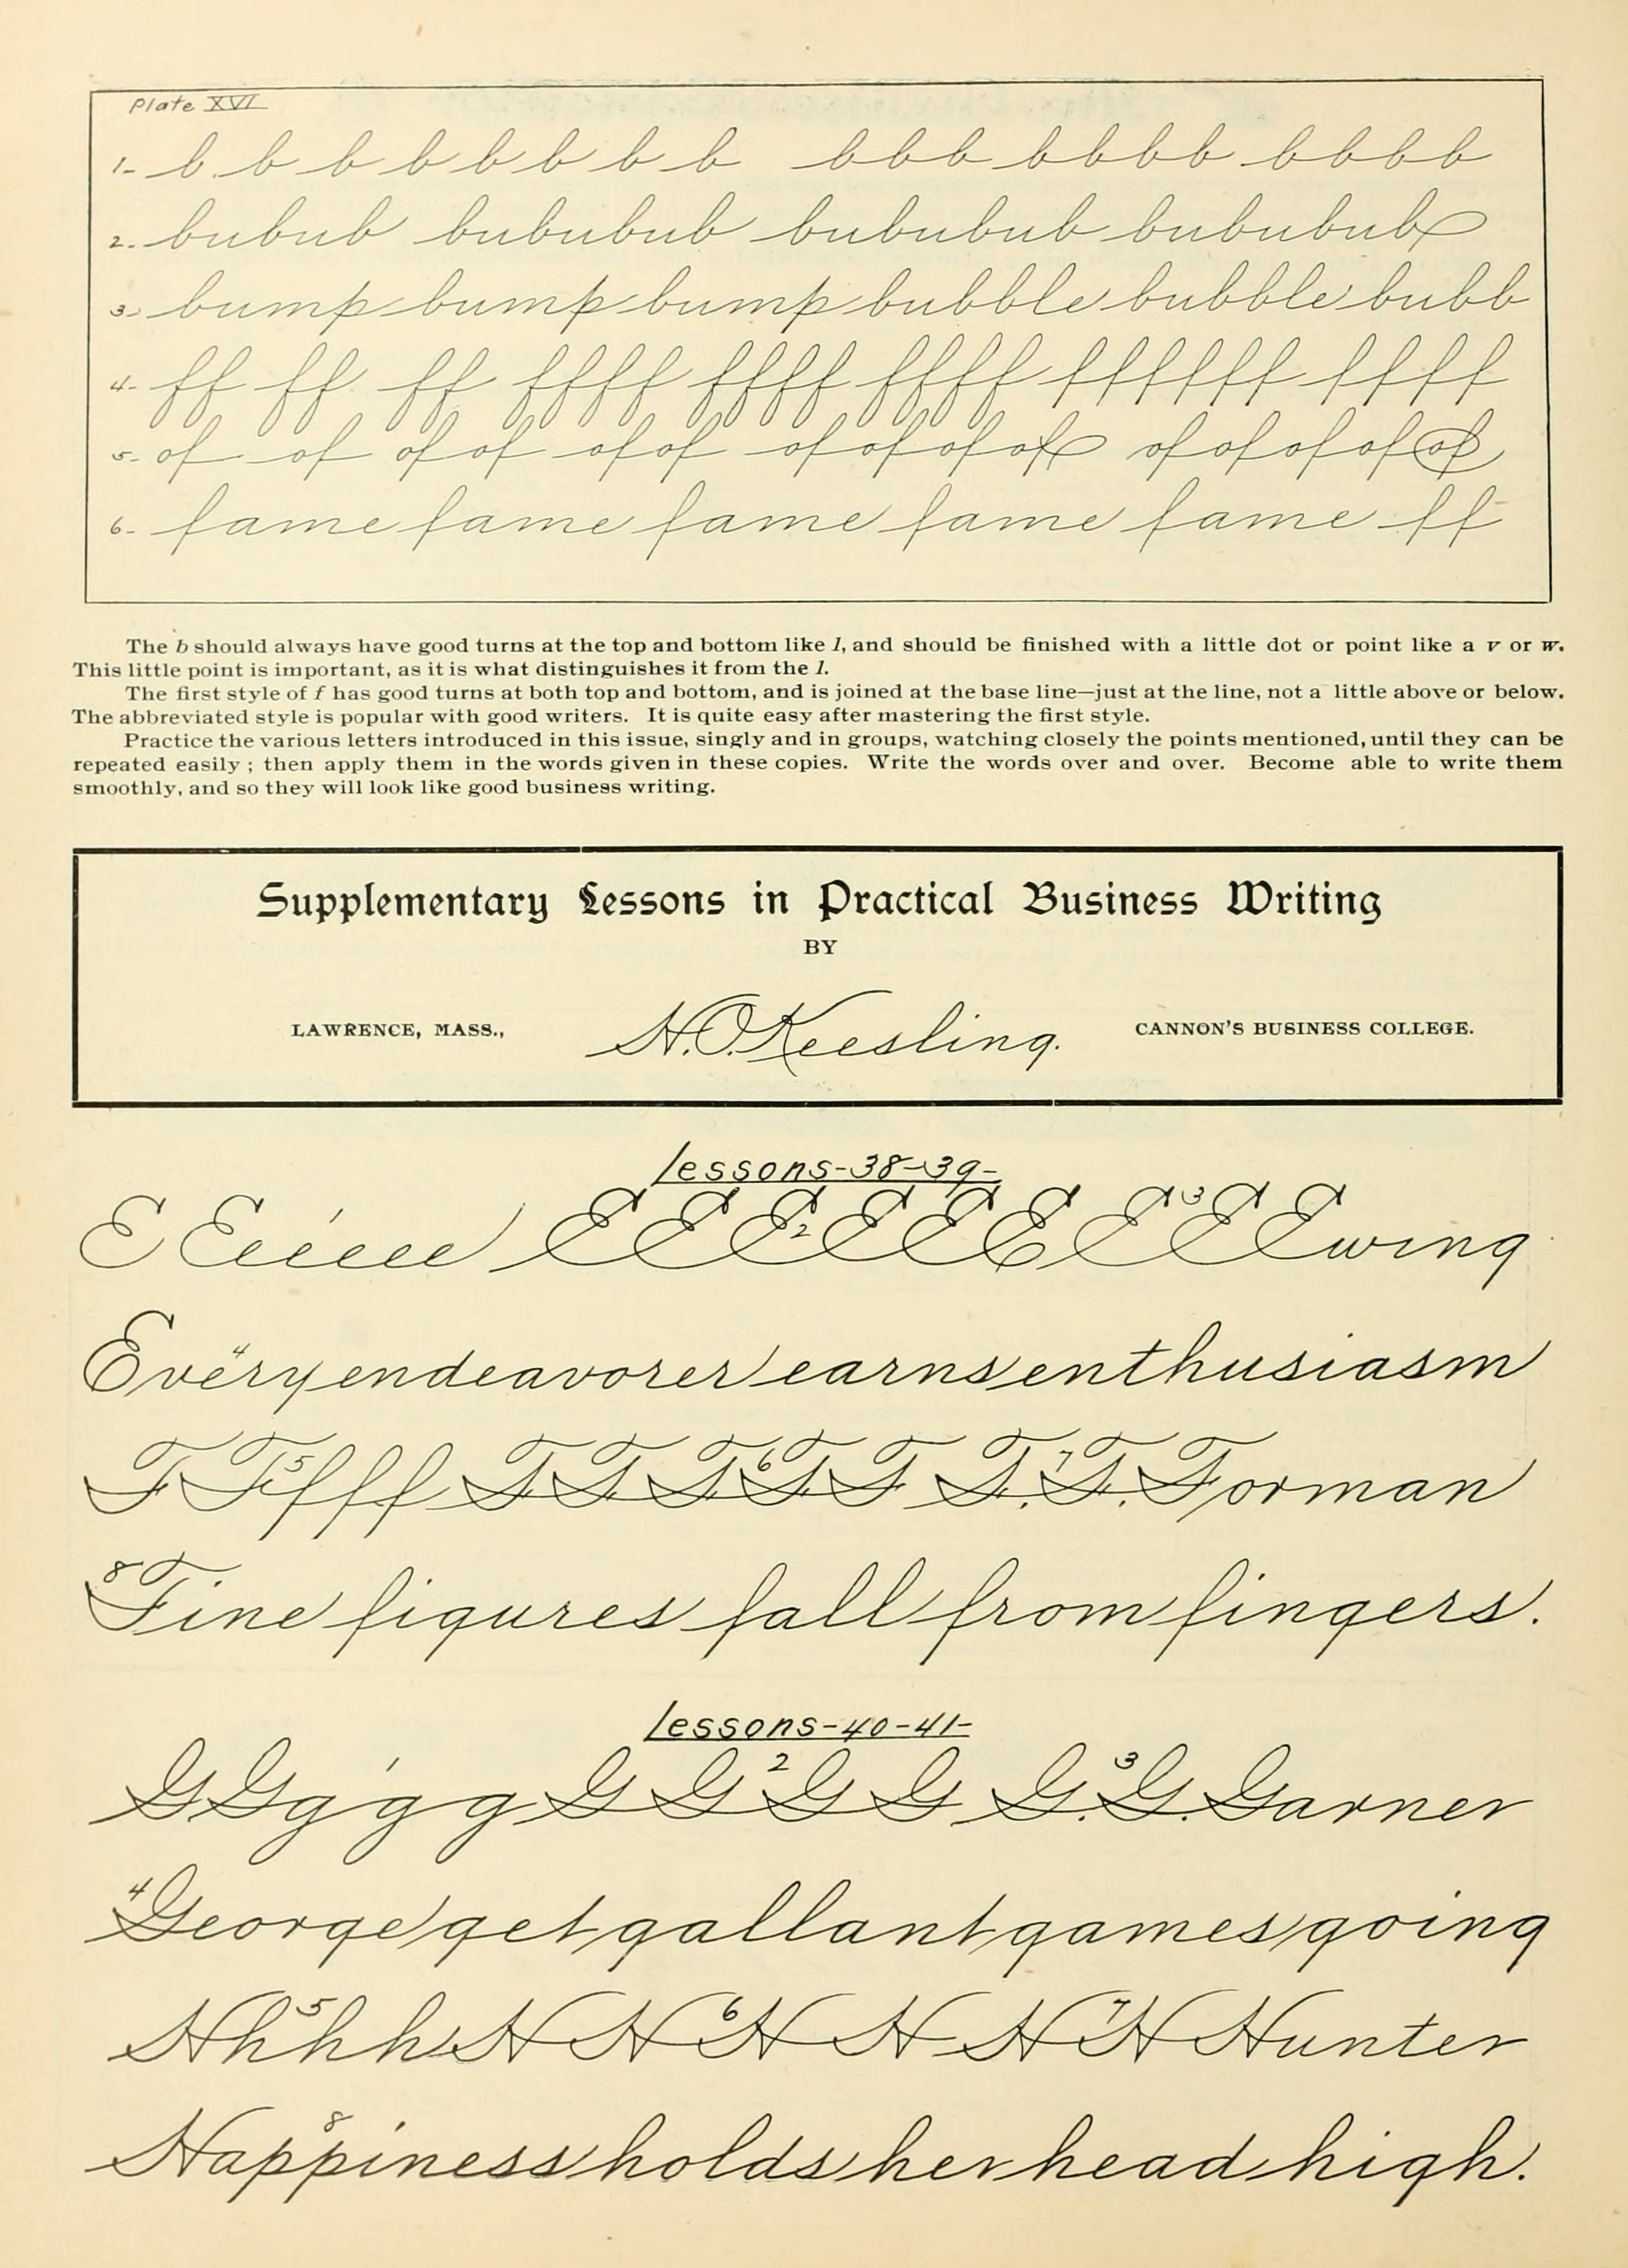 Plate XVI
1- b b b b b b b b b b b b b b b b b b b
2. bububub bubububub bubububub bubububub
3. bump bump bump bubble bubble bubb
4- ff ff ff ffff ffff ffff ffffff ffff
5- of of of of of of of of of of of of of of of
6- fame fame fame fame fame ff
The b should always have good turns at the top and bottom like l, and should be finished with a little dot or point like a v or w.
This little point is important, as it is what distinguishes it from the l.
The first style of f has good turns at both top and bottom, and is joined at the base line—just at the line, not a little above or below.
The abbreviated style is popular with good writers. It is quite easy after mastering the first style.
Practice the various letters introduced in this issue, singly and in groups, watching closely the points mentioned, until they can be
repeated easily; then apply them in the words given in these copies. Write the words over and over. Become able to write them
smoothly, and so they will look like good business writing.
Supplementary Lessons in Practical Business Writing
BY
LAWRENCE, MASS., H.O. Keesling. CANNON'S BUSINESS COLLEGE.
lessons-38-39-
E E e e e e e 1 E E E 2 E E E E 3 E Ewing
4 Every endeavorer earns enthusiasm
F F 5 f f f F F F 6 F F F. 7 F. Forman
8 Fine figures fall from fingers.
lessons-40-41-
G G g 1 g g G G 2 G G G. 3 G. Garner
4 George get gallant games going
H h 5 h h H H 6 H H H 7 H Hunter
8 Happiness holds her head high.